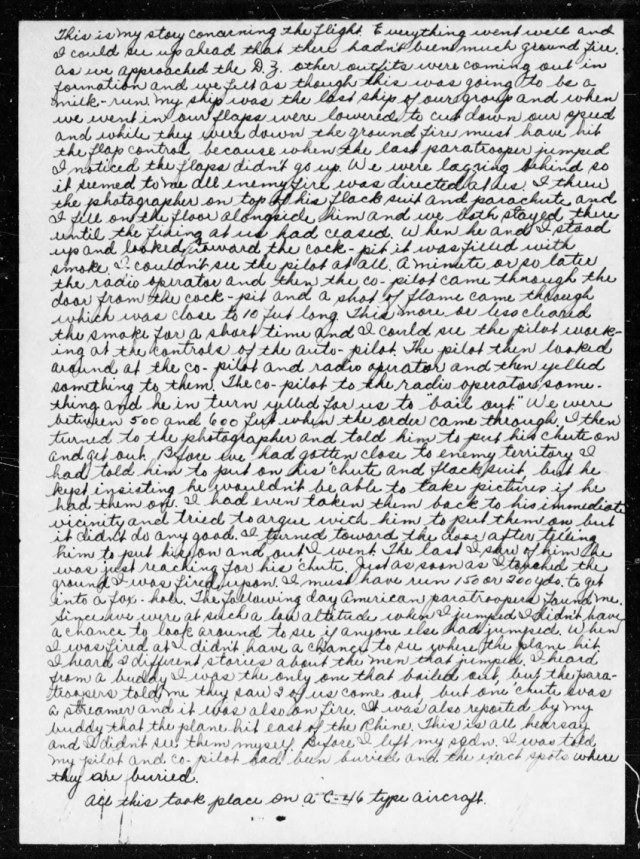 This is my story concerning the flight. Everything went well and
I could see up ahead that there hadn't been much ground fire.
As we approached the D.Z. other outfits were coming out in
formation and we felt as though this was going to be a
milk-run. My ship was the last ship of our group and when
we went in our flaps were lowered to cut down our speed
and while they were down the ground fire must have hit
the flap control because when the last paratrooper jumped
I noticed the flaps didn't go up. We were lagging behind so
it seemed to me all enemy fire was directed at us. I threw
the photographer on top of his flack suit and parachute and
I fell on the floor alongside him and we both stayed there
until the firing at us had ceased. When he and I stood
up and looked toward the cock-pit it was filled with
smoke. I couldn't see the pilot at all. A minute or so later
the radio operator and then the co-pilot came through the
door from the cock-pit and a shot of flame came through
which was close to 10 feet long. This more or less cleared
the smoke for a short time and I could see the pilot work-
ing at the controls of the auto-pilot. The pilot then looked
around at the co-pilot and radio operator and then yelled
something to them. The co-pilot to the radio operator some-
thing and he in turn yelled for us to "bail out." We were
between 500 and 600 feet when the order came through. I then
turned to the photographer and told him to put his chute on
and get out. Before we had gotten close to enemy territory I
had told him to put on his chute and flack suit, but he
kept insisting he wouldn't be able to take pictures if he
had them on. I had even taken them back to his immediate
vicinity and tried to argue with him to put them on but
it didn't do any good. I turned toward the door after telling
him to put his on and out I went. The last I saw of him he
was just reaching for his 'chute. Just as soon as I touched the
ground I was fired upon. I must have run 150 or 200 yds. to get
into a fox-hole. The following day American paratroopers found me.
Since we were at such a low altitude when I jumped I didn't have
a chance to look around to see if anyone else had jumped. When
I was fired at I didn't have a chance to see where the plane hit.
I heard 2 different stories about the men that jumped. I heard
from a buddy I was the only one that bailed out, but the para-
troopers told me they saw 2 of us come out, but one 'chute was
a streamer and it was also on fire. It was also reported by my
buddy that the plane hit east of the Rhine. This is all hearsay
and I didn't see them myself. Before I left my sqdn. I was told
my pilot and co-pilot had been buried and the exact spots where
they are buried.
All this took place on a C-46 type aircraft.